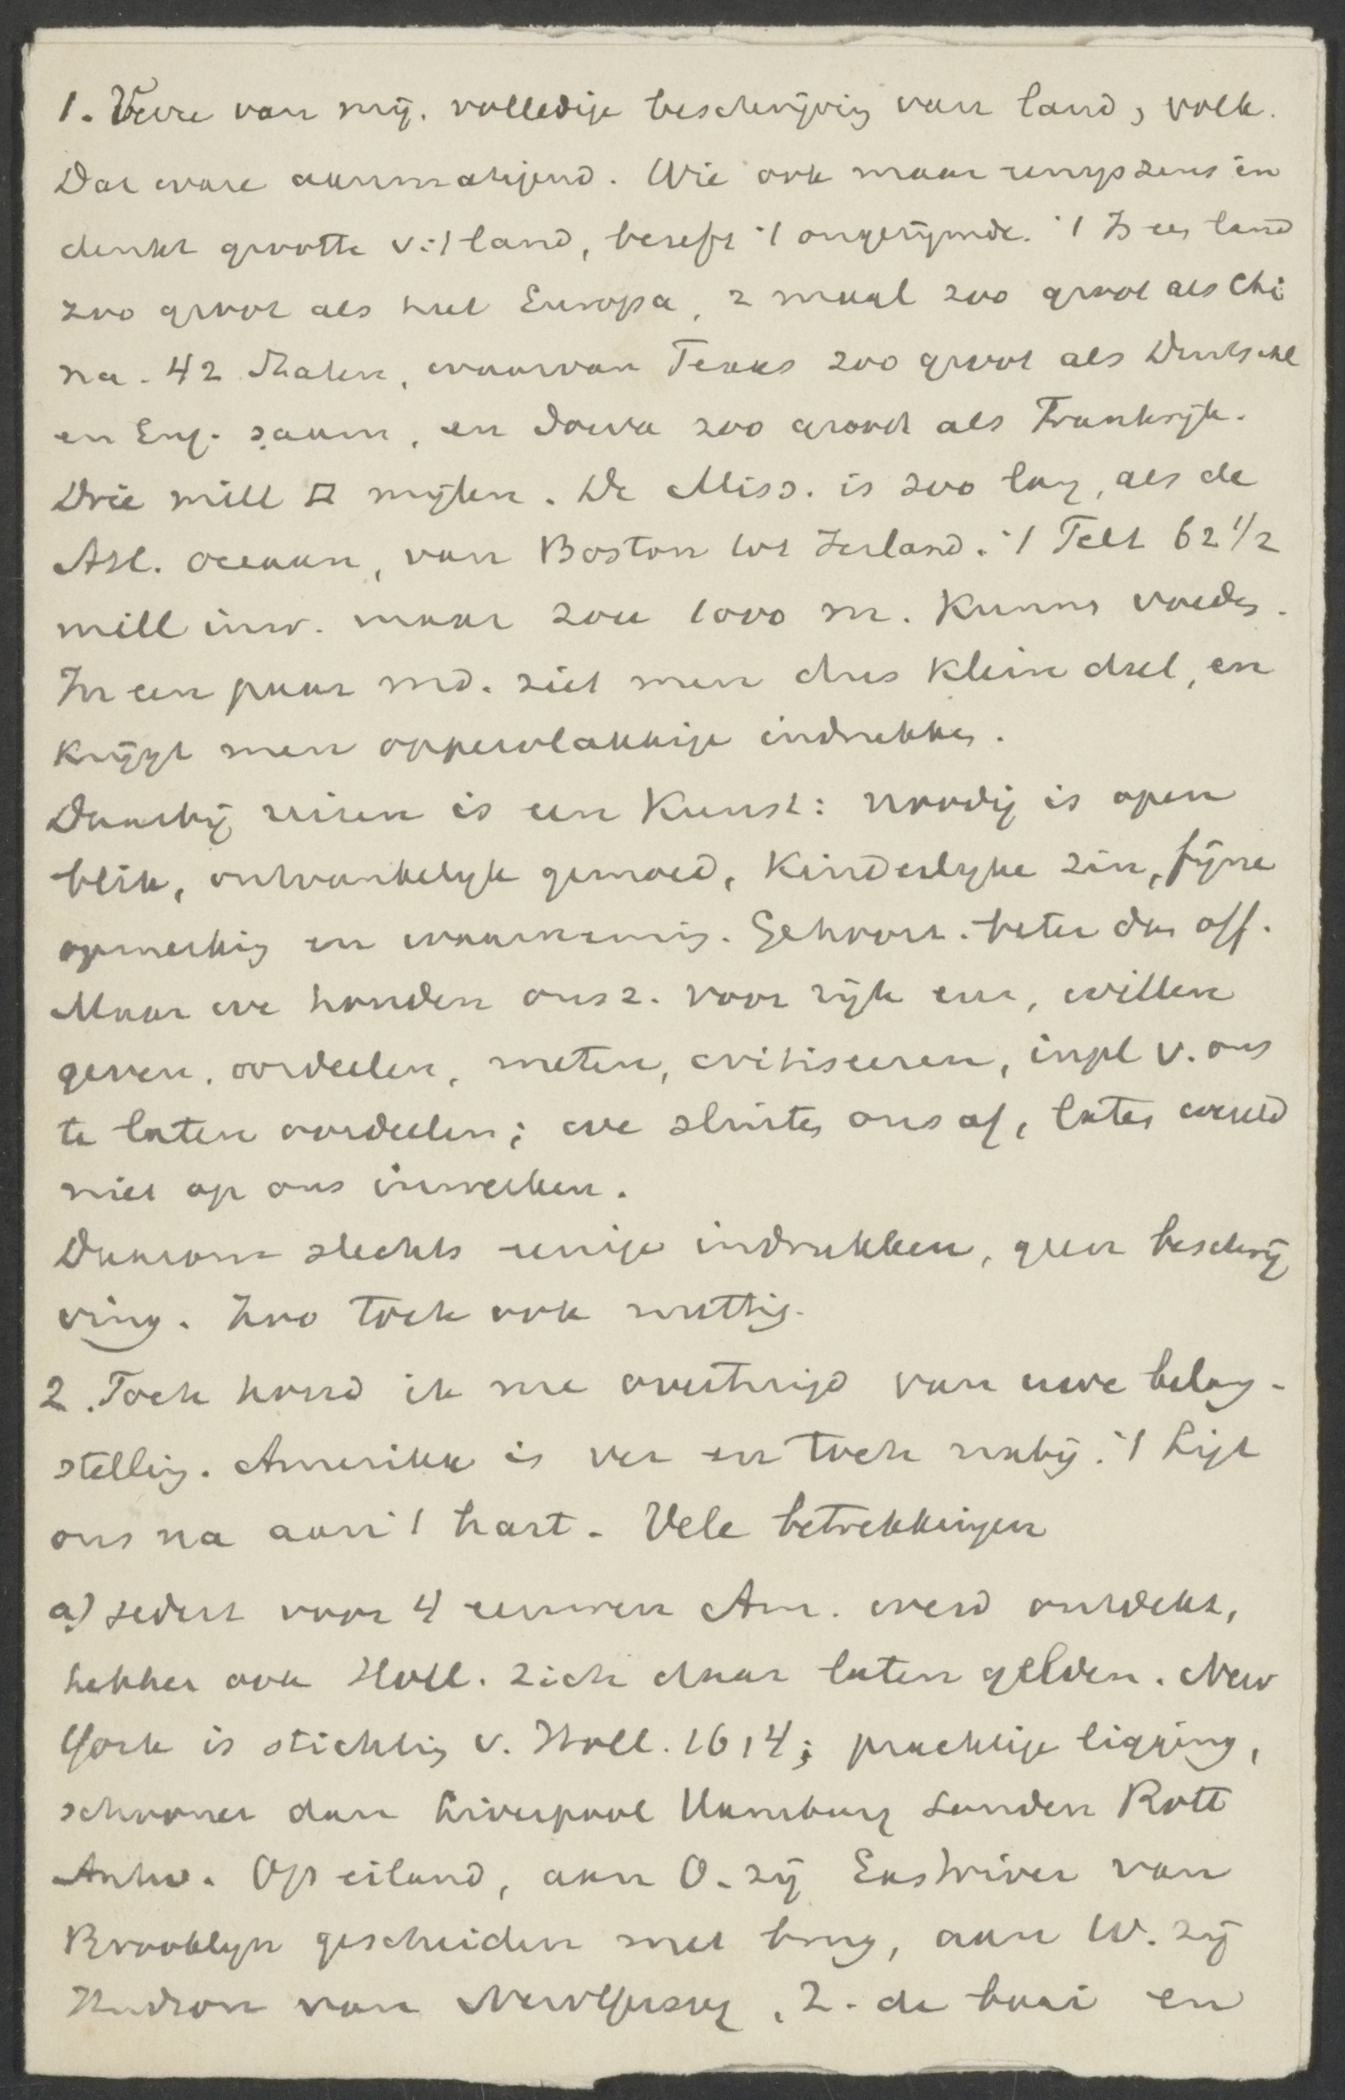 1. Verre van mij. volledige beschrijving van land, volk.
Dat ware aanmatigend. Wie ook maar eenigszins in
denkt grootte v. 't land, beseft 't ongerijmde. 't Is een land
zoo groot als heel Europa, 2 maal zoo groot als Chi
na. 42 Staten, waarvan Texas zoo groot als Duitschl
en Eng. saam, en Iowa zoo groot als Frankrijk.
Drie mill □ mijlen. De Miss. is zoo lang, als de
Atl. oceaan, van Boston tot Ierland. 't Telt 62 1/2
mill inw. maar zou 1000 m. kunnen voeden.
In een paar md. ziet men dus klein deel, en
krijgt men oppervlakkige indrukken.
Daarbij reizen is een kunst: noodig is open
blik, ontvankelijk gemoed, kinderlijke zin, fijne
opmerking en waarneming. Gehoorz. beter dan off.
Maar we houden ons z. voor rijk enz, willen
geven, oordeelen, meten, critiseeren, inpl v. ons
te laten oordeelen; we sluiten ons af, laten wereld
niet op ons inwerken.
Daarom slechts eenige indrukken, geen beschrij
ving. Zoo toch ook nuttig.
2. Toch houd ik me overtuigd van uwe belang-
stelling. Amerika is ver en toch nabij. 't Ligt
ons na aan 't hart. Vele betrekkingen
a) sedert voor 4 eeuwen Am. werd ontdekt,
hebben ook Holl. zich daar laten gelden. New
York is stichting v. Holl. 1614; prachtige ligging,
schooner dan Liverpool Hamburg Londen Rott
Antw. Op eiland, aan O. zij Eastriver van
Brooklyn gescheiden met brug, aan W. zij
Hudson van New Yersey, Z. de baai en